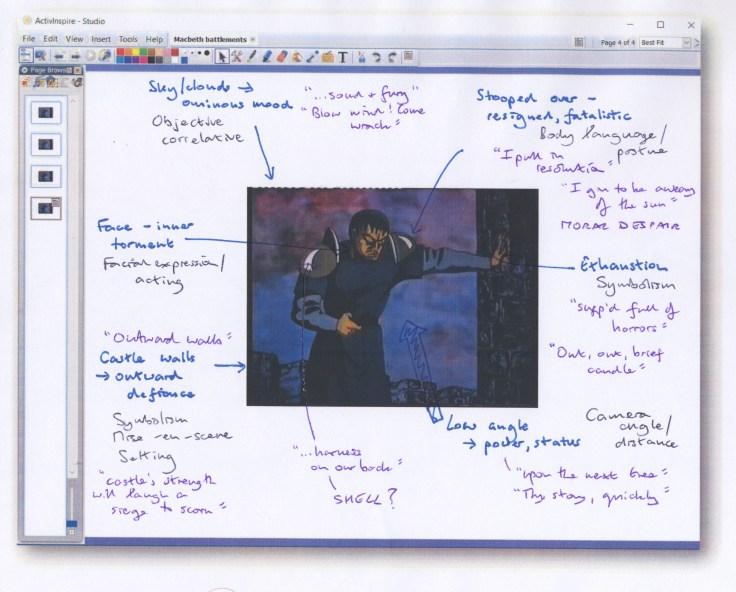 ActivInspire - Studio
File Edit View Insert Tools Help
Macbeth battlements
Page 4 of 4
Best Fit
Page Brows
Sky/clouds →
ominous mood
Objective
correlative
"...sound + fury"
"Blow wind! Come
wrack"
Stooped over -
resigned, fatalistic
Body language/
posture
"I pull in
resolution"
"I gin to be aweary
of the sun"
MORAL DESPAIR
Face - inner
torment
Facial expression/
acting
Exhaustion
Symbolism
"supp'd full of
horrors"
"Out, out, brief
candle"
"Outward walls"
Castle walls
→ outward
defiance
Symbolism
Mise-en-scene
Setting
"castle's strength
will laugh a
siege to scorn"
"...harness
on our back"
SHELL?
Low angle
→ power, status
Camera
angle/
distance
"upon the next tree"
"Thy story, quickly"